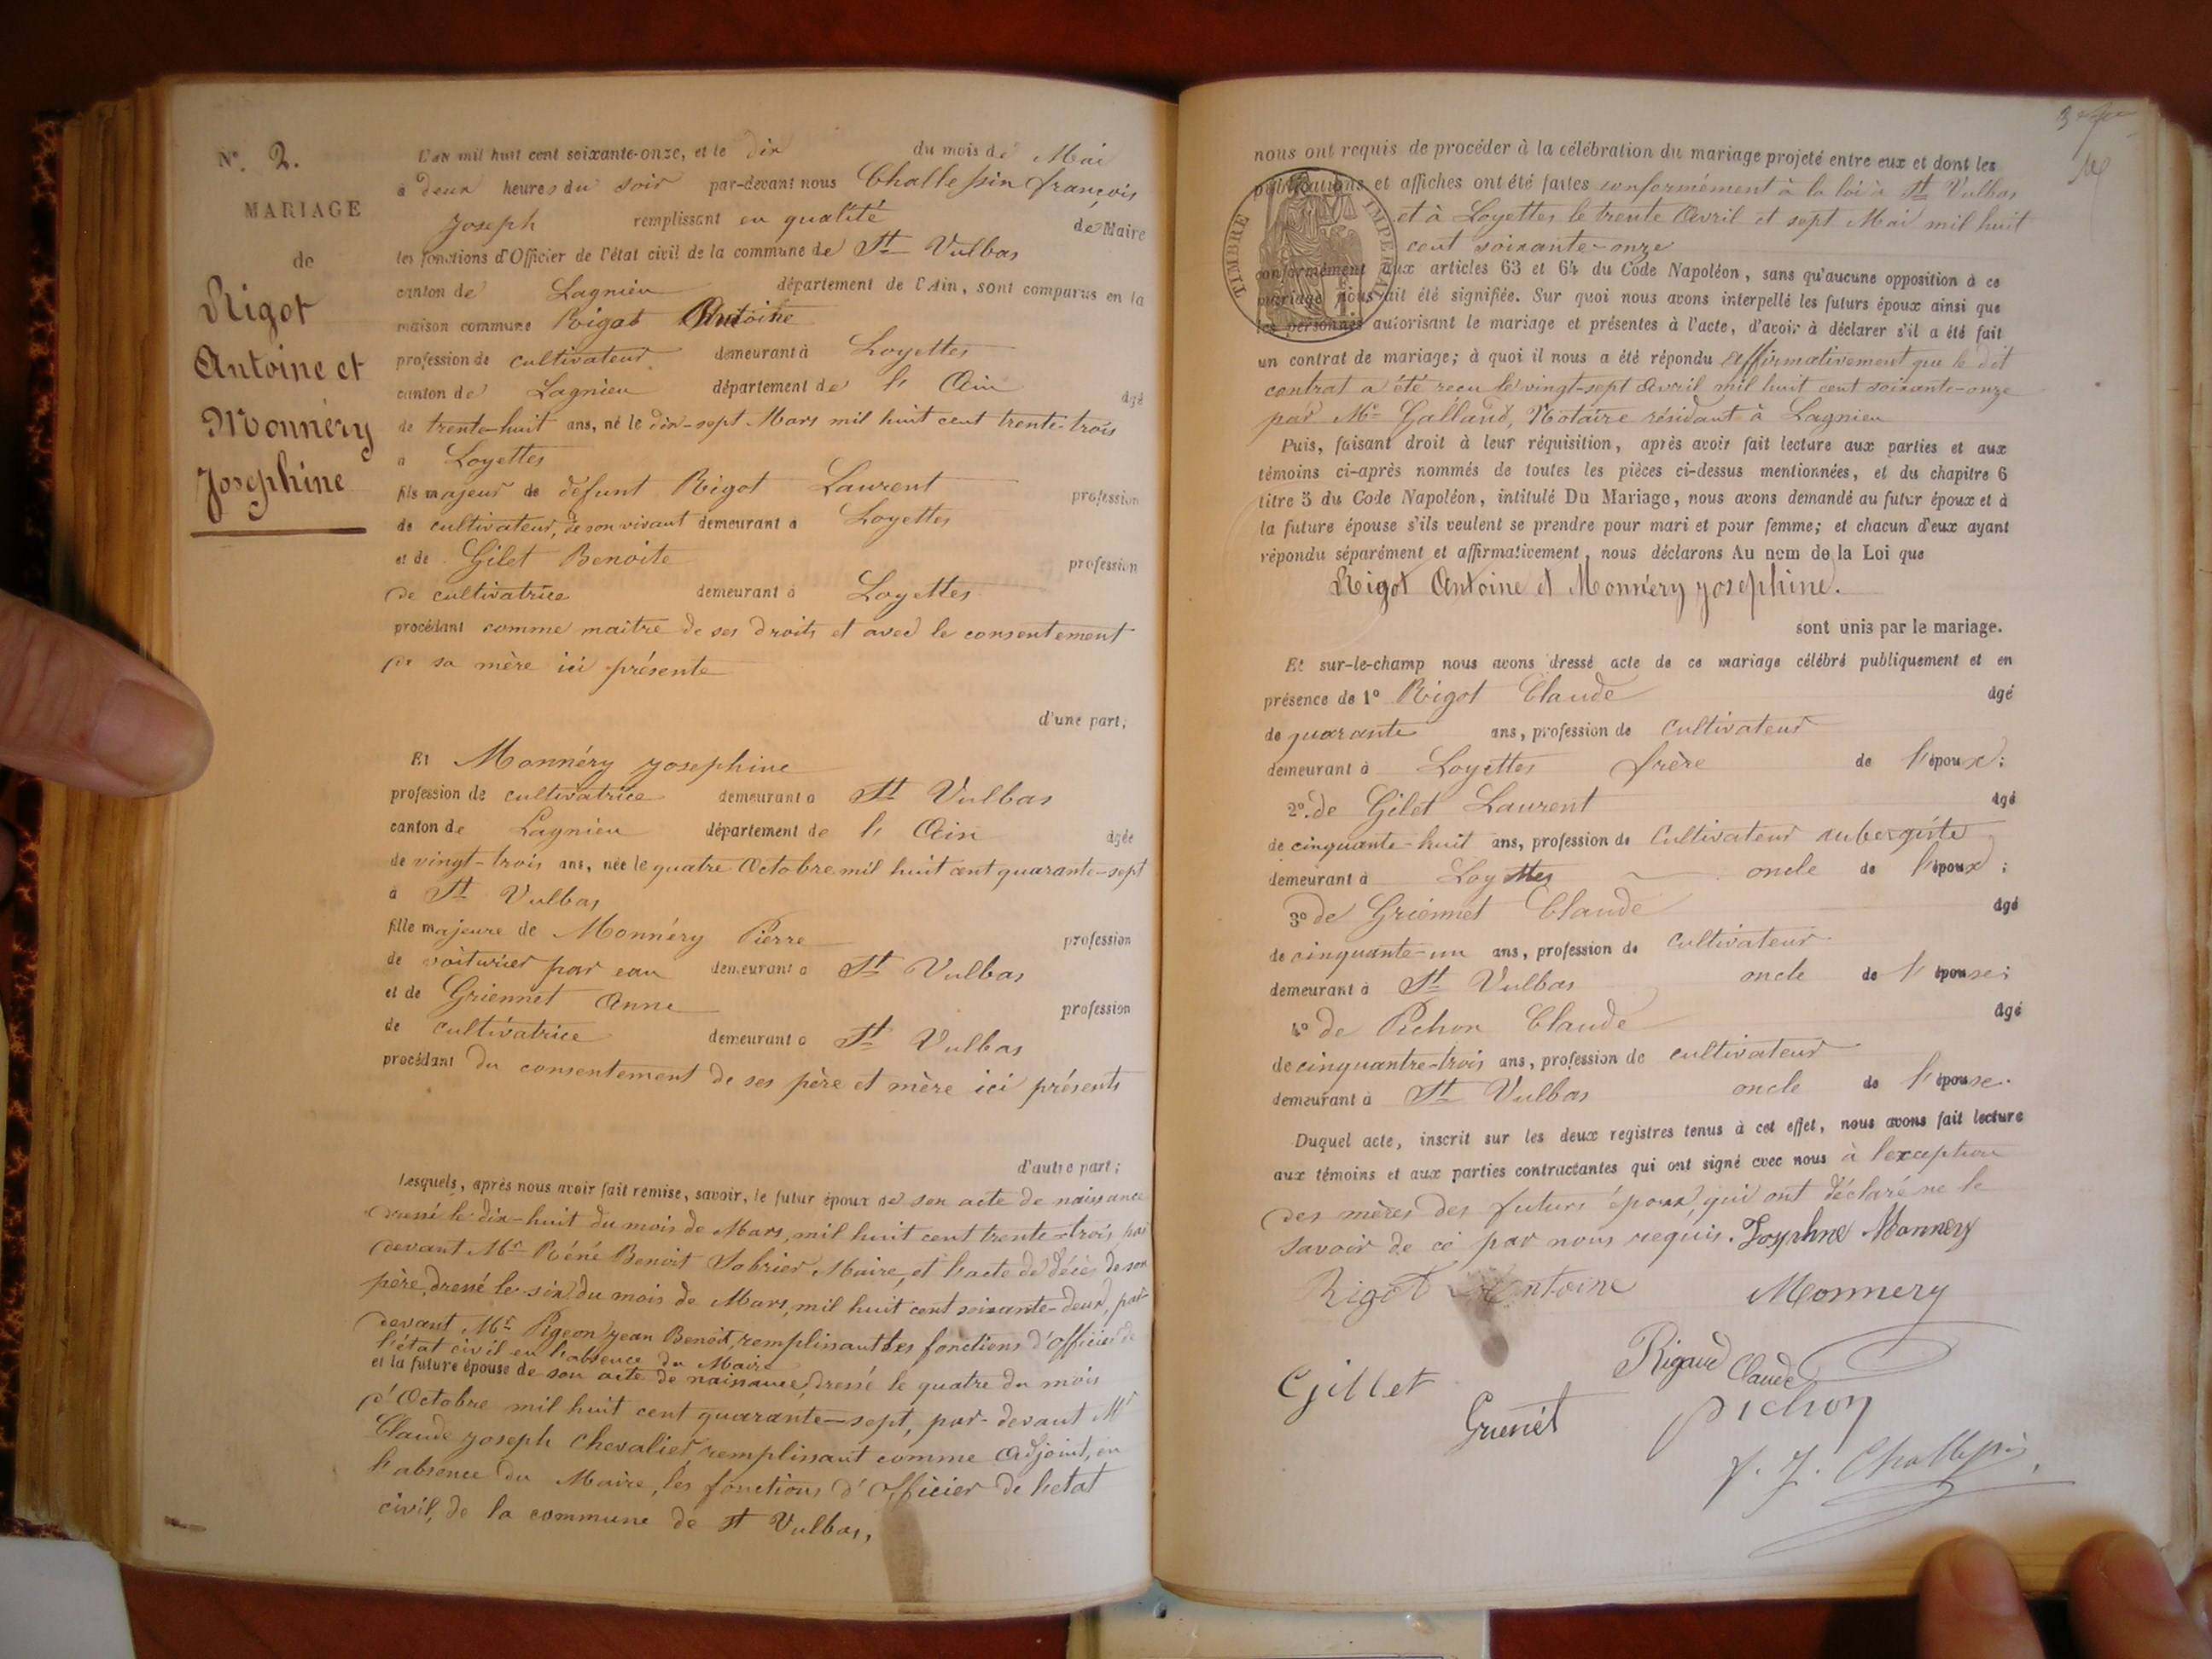 N° 2.
MARIAGE
de
Rigot
Antoine et
Monnéry
Josephine
L'an mil huit cent soixante-onze, et le dix du mois de Mai
à deux heures du soir par-devant nous Challessin françois
Joseph remplissant en qualité de Maire
les fonctions d'Officier de l'état civil de la commune de St Vulbas
canton de Lagnieu département de l'Ain, sont comparus en la
maison commune Rigot Antoine
profession de cultivateur demeurant à Loyettes
canton de Lagnieu département de l'Ain âgé
de trente-huit ans, né le dix-sept Mars mil huit cent trente-trois
à Loyettes
fils majeur de défunt Rigot Laurent profession
de cultivateur, de son vivant demeurant à Loyettes
et de Gilet Benoite profession
de cultivatrice demeurant à Loyettes
procédant comme maitre de ses droits et avec le consentement
de sa mère ici présente
d'une part;
Et Monnéry Josephine
profession de cultivatrice demeurant à St Vulbas
canton de Lagnieu département de l'Ain âgée
de vingt-trois ans, née le quatre Octobre mil huit cent quarante-sept
à St Vulbas
fille majeure de Monnéry Pierre profession
de voiturier par eau demeurant à St Vulbas
et de Griennet Anne profession
de cultivatrice demeurant à St Vulbas
procédant du consentement de ses père et mère ici présents
d'autre part;
Lesquels, après nous avoir fait remise, savoir, le futur époux de son acte de naissance
dressé le dix-huit du mois de Mars, mil huit cent trente-trois par
devant Mr Réné Benoit Sabrier Maire, et l'acte de décès de son
père, dressé le six du mois de Mars, mil huit cent soixante-deux, par-
devant Mr Pigeon Jean Benoit, remplissant les fonctions d'officier de
l'état civil en l'absence du Maire
et la future épouse de son acte de naissance, dressé le quatre du mois
d'Octobre mil huit cent quarante-sept, par-devant Mr
Claude Joseph Chevalier, remplissant comme Adjoint, en
l'absence du Maire, les fonctions d'Officier de l'etat
civil, de la commune de St Vulbas,
nous ont requis de procéder à la célébration du mariage projeté entre eux et dont les
publications et affiches ont été faites conformément à la loi à St Vulbas
et à Loyettes le trente Avril et sept Mai mil huit
cent soixante-onze
TIMBRE IMPERIAL
conformément aux articles 63 et 64 du Code Napoléon, sans qu'aucune opposition à ce
mariage nous ait été signifiée. Sur quoi nous avons interpellé les futurs époux ainsi que
les personnes autorisant le mariage et présentes à l'acte, d'avoir à déclarer s'il a été fait
un contrat de mariage; à quoi il nous a été répondu affirmativement que le dit
contrat a été reçu le vingt-sept Avril mil huit cent soixante-onze
par Me Galland, Notaire résidant à Lagnieu
Puis, faisant droit à leur réquisition, après avoir fait lecture aux parties et aux
témoins ci-après nommés de toutes les pièces ci-dessus mentionnées, et du chapitre 6
titre 5 du Code Napoléon, intitulé Du Mariage, nous avons demandé au futur époux et à
la future épouse s'ils veulent se prendre pour mari et pour femme; et chacun d'eux ayant
répondu séparément et affirmativement, nous déclarons Au nom de la Loi que
Rigot Antoine et Monnéry Josephine.
sont unis par le mariage.
Et sur-le-champ nous avons dressé acte de ce mariage célébré publiquement et en
présence de 1° Rigot Claude âgé
de quarante ans, profession de cultivateur
demeurant à Loyettes frère de l'époux;
2° de Gilet Laurent âgé
de cinquante-huit ans, profession de Cultivateur aubergiste
demeurant à Loyettes oncle de l'époux;
3° de Griennet Claude âgé
de cinquante-un ans, profession de cultivateur
demeurant à St Vulbas oncle de l'épouse;
4° de Pichon Claude âgé
de cinquantre-trois ans, profession de cultivateur
demeurant à St Vulbas oncle de l'épouse.
Duquel acte, inscrit sur les deux registres tenus à cet effet, nous avons fait lecture
aux témoins et aux parties contractantes qui ont signé avec nous à l'exception
des mères des futurs époux, qui ont déclaré ne le
savoir de ce par nous requis. Josphne Monnery
Rigot Antoine Monnery
Rigaud Claude
Gillet
Grienét pichon
f. J. Challessin